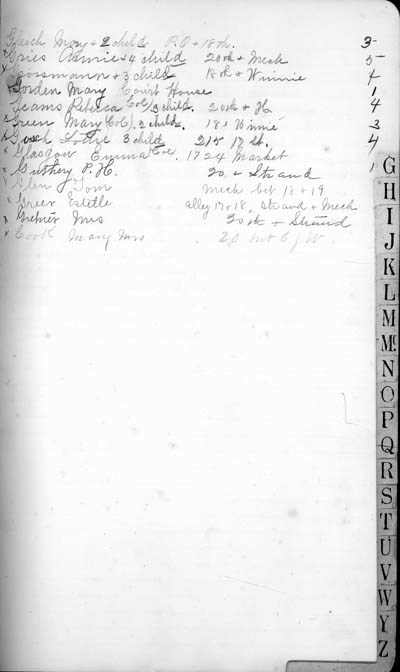 Gleich Mary + 2 child P.O + 18th. 3
x Gries Annie + 4 child 20th + Mech 5
x Grossmann + 3 child 18th + Winnie 4
Gorden Mary Court House 1
Geams Rebecca (Col) 3 child. 20th + H 4
x Green Mary (Col). 2 child. 18 + Winnie 3
x Gosch Lottye 3 child 215 17 St. 4
x Glasgow Emma Col. 1724 Market 1
x Guthey P. H. 20. + Strand 1
x Glen Tom Mech bet 18 + 19
x Greer Estelle alley 17 + 18, Strand + Mech
x Mrs 20th + Strand
x Cook Mary Mrs 20
G
H
I
J
K
L
M
Mc
N
O
P
Q
R
S
T
U
V
W
Y
Z